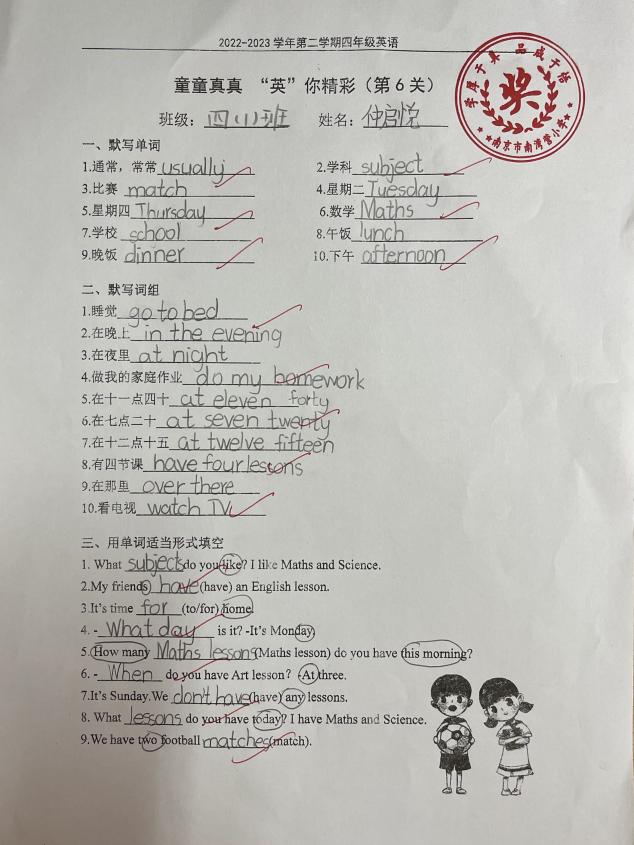 2022-2023 学年第二学期四年级英语
童童真真 “英”你精彩（第 6 关）
班级: 四(1)班 姓名: 仲启悦
学厚于真 品成于恪
奖
南京市南湾营小学
一、默写单词
1.通常，常常 usually 2.学科 subject
3.比赛 match 4.星期二 Tuesday
5.星期四 Thursday 6.数学 Maths
7.学校 school 8.午饭 lunch
9.晚饭 dinner 10.下午 afternoon
二、默写词组
1.睡觉 go to bed
2.在晚上 in the evening
3.在夜里 at night
4.做我的家庭作业 do my homework
5.在十一点四十 at eleven forty
6.在七点二十 at seven twenty
7.在十二点十五 at twelve fifteen
8.有四节课 have four lessons
9.在那里 over there
10.看电视 watch TV
三、用单词适当形式填空
1. What subjects do you like? I like Maths and Science.
2.My friends have (have) an English lesson.
3.It's time for (to/for) home.
4. - What day is it? -It's Monday.
5. How many Maths lessons (Maths lesson) do you have this morning?
6. - When do you have Art lesson? -At three.
7.It's Sunday.We don't have (have) any lessons.
8. What lessons do you have today? I have Maths and Science.
9.We have two football matches (match).